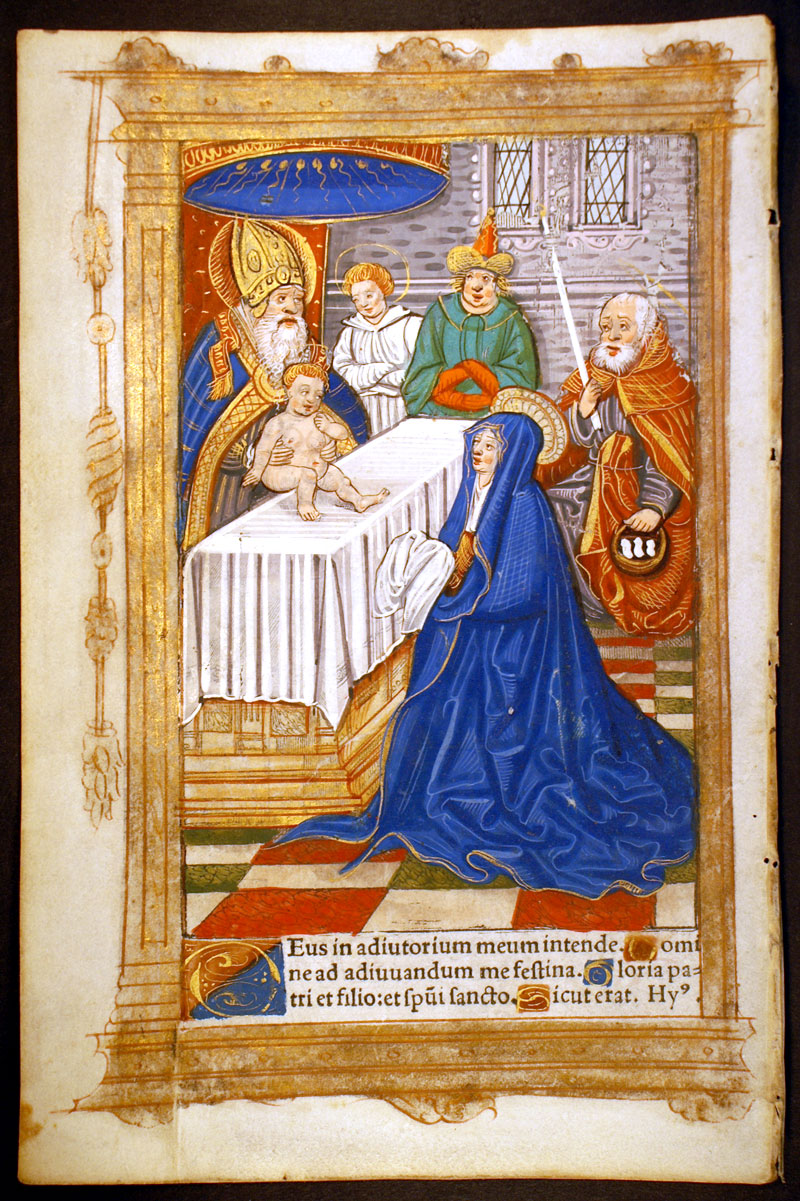 Deus in adiutorium meum intende. Domi
ne ad adiuuandum me festina. Gloria pa-
tri et filio: et spūi sancto. Sicut erat. Hyꝰ.